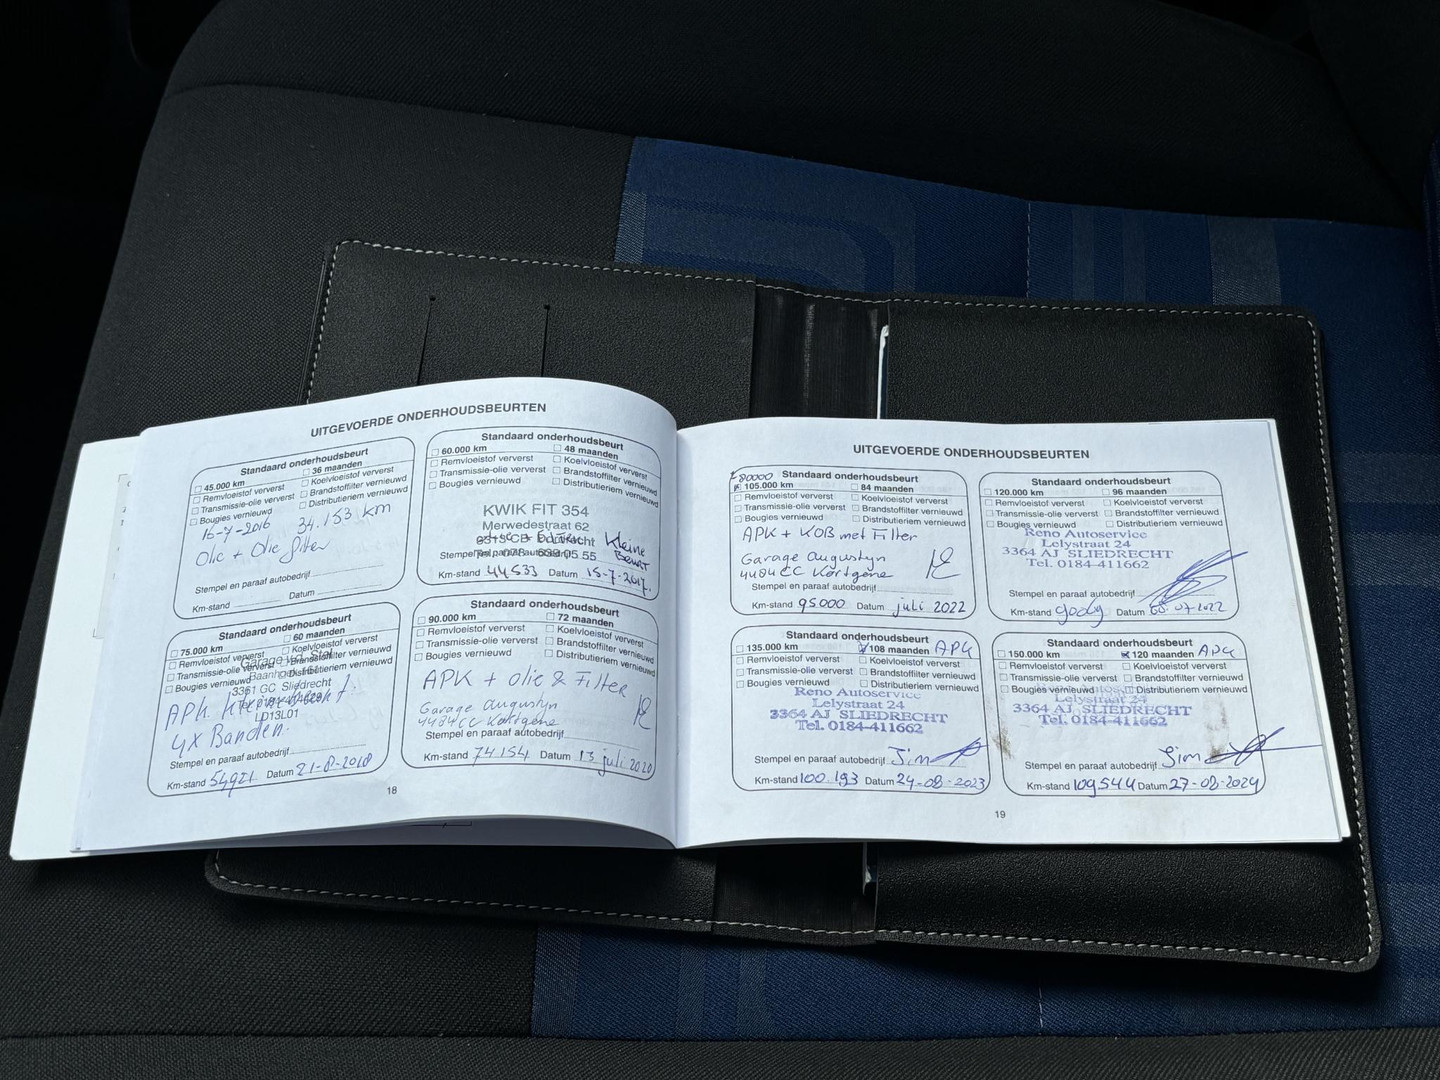 UITGEVOERDE ONDERHOUDSBEURTEN
Standaard onderhoudsbeurt
45.000 km 36 maanden
Remvloeistof ververst Koelvloeistof ververst
Transmissie-olie ververst Brandstoffilter vernieuwd
Bougies vernieuwd Distributieriem vernieuwd
15-7-2016 34.153 km
Olie + Olie filter
Stempel en paraaf autobedrijf
Km-stand Datum
Standaard onderhoudsbeurt
60.000 km 48 maanden
Remvloeistof ververst Koelvloeistof ververst
Transmissie-olie ververst Brandstoffilter vernieuwd
Bougies vernieuwd Distributieriem vernieuwd
KWIK FIT 354
Merwedestraat 62
Kleine
Beurt
Stempel en paraaf autobedrijf
Km-stand 44533 Datum 15-7-2017
Standaard onderhoudsbeurt
75.000 km 60 maanden
Remvloeistof ververst Koelvloeistof ververst
Transmissie-olie ververst Brandstoffilter vernieuwd
Bougies vernieuwd Distributieriem vernieuwd
3361 GC Sliedrecht
LD13L01
APK
4x Banden.
Stempel en paraaf autobedrijf
Km-stand 54921 Datum 21-8-2018
Standaard onderhoudsbeurt
90.000 km 72 maanden
Remvloeistof ververst Koelvloeistof ververst
Transmissie-olie ververst Brandstoffilter vernieuwd
Bougies vernieuwd Distributieriem vernieuwd
APK + olie & Filter
Garage Augustyn
4484CC Kortgene
Stempel en paraaf autobedrijf
Km-stand 74154 Datum 13 juli 2020
18
UITGEVOERDE ONDERHOUDSBEURTEN
Standaard onderhoudsbeurt
105.000 km 84 maanden
Remvloeistof ververst Koelvloeistof ververst
Transmissie-olie ververst Brandstoffilter vernieuwd
Bougies vernieuwd Distributieriem vernieuwd
APK + KOB met Filter
Garage Augustyn
4484CC Kortgene
Stempel en paraaf autobedrijf
Km-stand 95000 Datum juli 2022
Standaard onderhoudsbeurt
120.000 km 96 maanden
Remvloeistof ververst Koelvloeistof ververst
Transmissie-olie ververst Brandstoffilter vernieuwd
Bougies vernieuwd Distributieriem vernieuwd
Reno Autoservice
Lelystraat 24
3364 AJ SLIEDRECHT
Tel. 0184-411662
Stempel en paraaf autobedrijf
Km-stand Datum
Standaard onderhoudsbeurt
135.000 km 108 maanden APK
Remvloeistof ververst Koelvloeistof ververst
Transmissie-olie ververst Brandstoffilter vernieuwd
Bougies vernieuwd Distributieriem vernieuwd
Reno Autoservice
Lelystraat 24
3364 AJ SLIEDRECHT
Tel. 0184-411662
Stempel en paraaf autobedrijf
Km-stand 100.193 Datum 24-08-2023
Standaard onderhoudsbeurt
150.000 km 120 maanden APK
Remvloeistof ververst Koelvloeistof ververst
Transmissie-olie ververst Brandstoffilter vernieuwd
Bougies vernieuwd Distributieriem vernieuwd
Lelystraat 24
3364 AJ SLIEDRECHT
Tel. 0184-411662
Stempel en paraaf autobedrijf
Km-stand 109544 Datum 27-08-2024
19